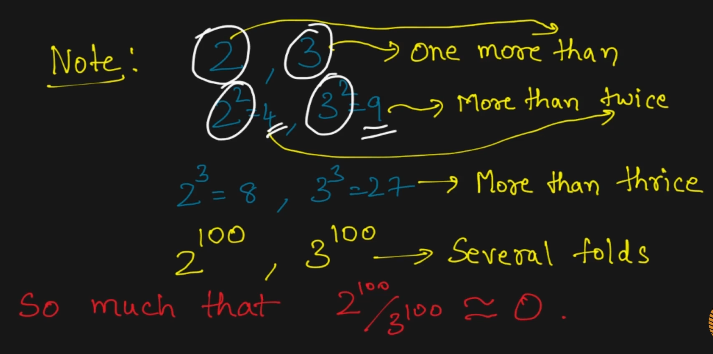 Note: 2, 3 → One more than
2² = 4, 3² = 9 → More than twice
2³ = 8, 3³ = 27 → More than thrice
2¹⁰⁰, 3¹⁰⁰ → Several folds
So much that 2¹⁰⁰/3¹⁰⁰ ≈ 0.